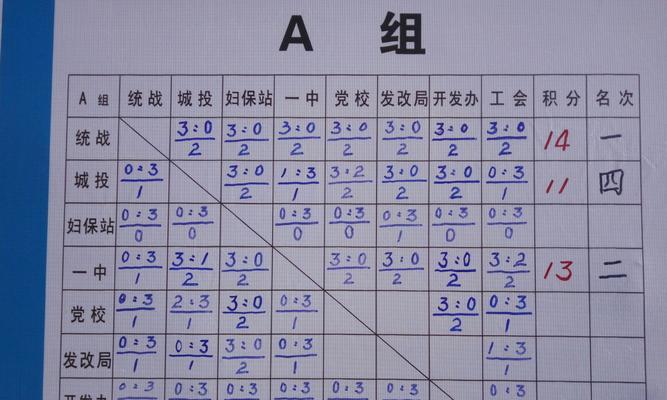 A 组
A 组 统战 城投 妇保站 一中 党校 发改局 开发办 工会 积分 名次
统战 3:0/2 3:0/2 3:0/2 3:0/2 3:0/2 3:0/2 3:0/2 14 一
城投 0:3/1 3:0/2 1:3/1 3:2/2 3:0/2 3:0/2 0:3/1 11 四
妇保站 0:3/0 0:3/0 0:3/0 0:3/0 0:3/1 0:3/0 0:3/0
一中 0:3/1 3:1/2 3:0/2 3:0/2 3:0/2 3:0/2 3:2/2 13 二
党校 0:3/1 2:3/1 3:0/2 0:3/1 3:0/2 0:3/1
发改局 0:3/1 0:3/1 3:0/2 0:3/1 1:3/1
开发办 0:3 0:3 0:3 0:3 0:3 0:3 0:3